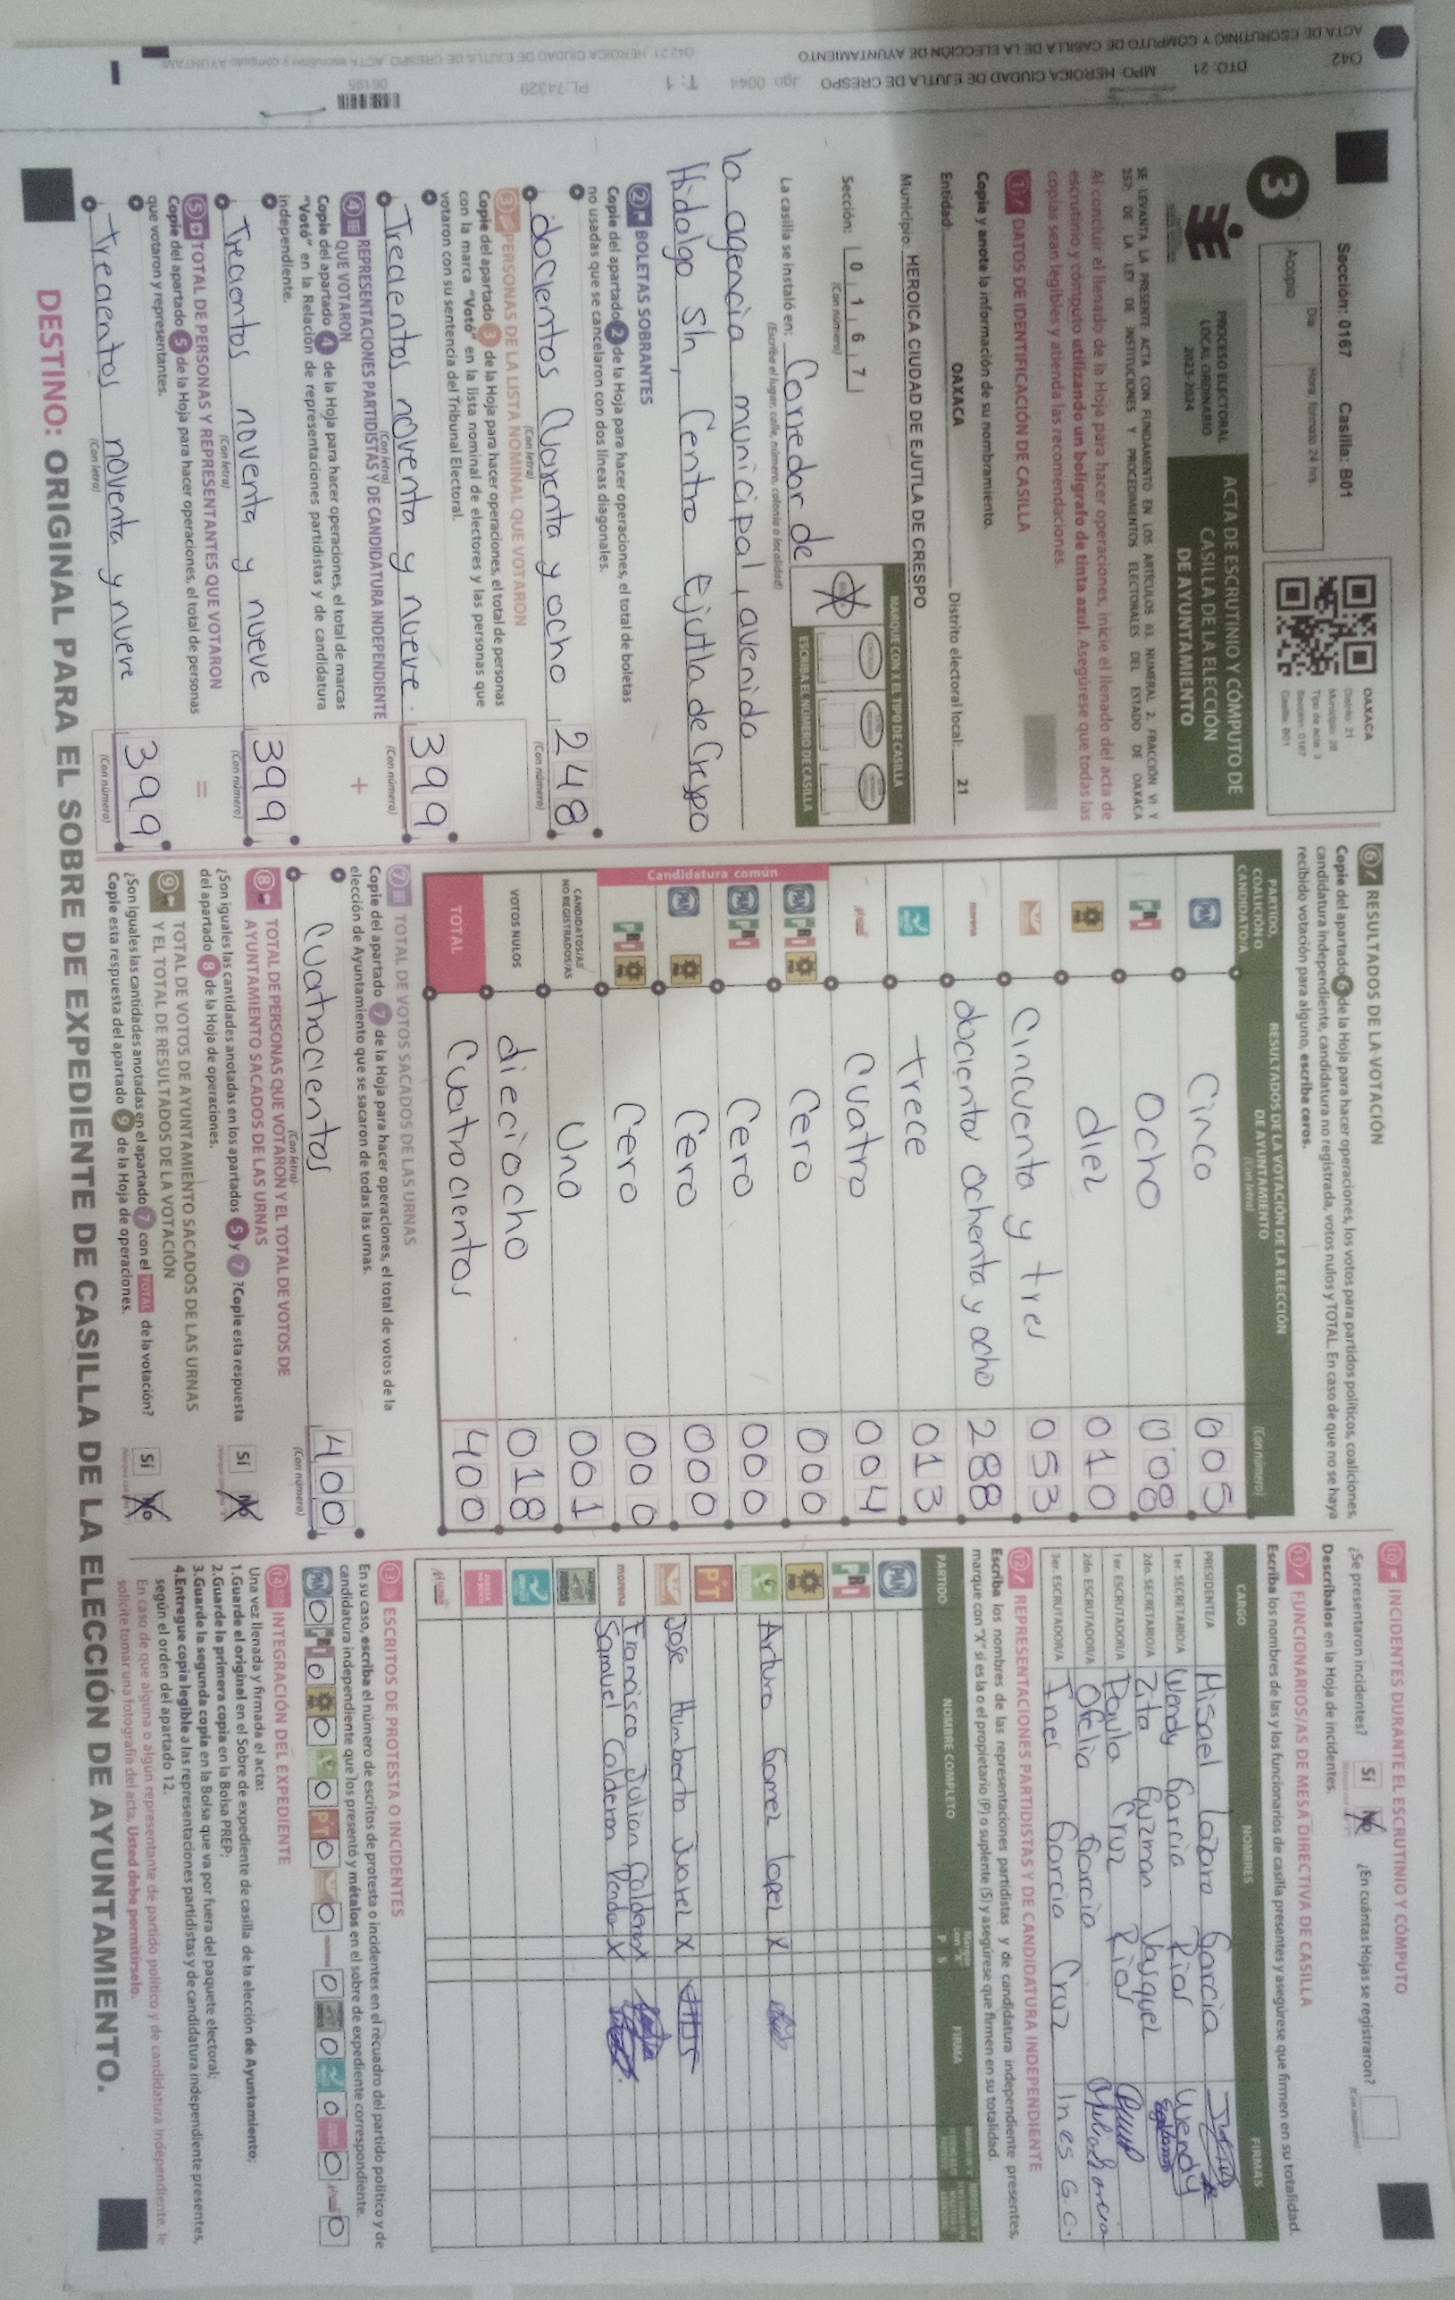 042 DTO: 21 MPO: HEROICA CIUDAD DE EJUTLA DE CRESPO Jgo: 0044 T: 1 PL:74329
ACTA DE ESCRUTINIO Y COMPUTO DE CASILLA DE LA ELECCIÓN DE AYUNTAMIENTO
Sección: 0167 Casilla: B01
3
Acopio
Día
Hora: formato 24 hrs.
OAXACA
Distrito: 21
Municipio: 28
Tipo de acta: 3
Sección: 0167
Casilla: B01
PROCESO ELECTORAL
LOCAL ORDINARIO
2023-2024
ACTA DE ESCRUTINIO Y CÓMPUTO DE
CASILLA DE LA ELECCIÓN
DE AYUNTAMIENTO
SE LEVANTA LA PRESENTE ACTA CON FUNDAMENTO EN LOS ARTÍCULOS 63, NUMERAL 2, FRACCIÓN VI Y
257; DE LA LEY DE INSTITUCIONES Y PROCEDIMIENTOS ELECTORALES DEL ESTADO DE OAXACA
Al concluir el llenado de la Hoja para hacer operaciones, inicie el llenado del acta de
escrutinio y cómputo utilizando un bolígrafo de tinta azul. Asegúrese que todas las
copias sean legibles y atienda las recomendaciones.
1 DATOS DE IDENTIFICACIÓN DE CASILLA
Copie y anote la información de su nombramiento.
Entidad: OAXACA Distrito electoral local: 21
Municipio: HEROICA CIUDAD DE EJUTLA DE CRESPO
Sección: 0 1 6 7
(Con número)
MARQUE CON X EL TIPO DE CASILLA
ESCRIBA EL NÚMERO DE CASILLA
La casilla se instaló en: Corredor de
(Escriba el lugar, calle, número, colonia o localidad)
la agencia municipal, avenida
Hidalgo s/n, Centro Ejutla de Crespo
2 BOLETAS SOBRANTES
Copie del apartado 2 de la Hoja para hacer operaciones, el total de boletas
no usadas que se cancelaron con dos líneas diagonales.
docientos Cuarenta y ocho 248
(Con letra) (Con número)
3 PERSONAS DE LA LISTA NOMINAL QUE VOTARON
Copie del apartado 3 de la Hoja para hacer operaciones, el total de personas
con la marca "Votó" en la lista nominal de electores y las personas que
votaron con su sentencia del Tribunal Electoral.
Trecientos noventa y nueve. 399
(Con letra) (Con número)
4 REPRESENTACIONES PARTIDISTAS Y DE CANDIDATURA INDEPENDIENTE
QUE VOTARON +
Copie del apartado 4 de la Hoja para hacer operaciones, el total de marcas
"Votó" en la Relación de representaciones partidistas y de candidatura
independiente.
Trecientos noventa y nueve 399
(Con letra) (Con número)
5 TOTAL DE PERSONAS Y REPRESENTANTES QUE VOTARON =
Copie del apartado 5 de la Hoja para hacer operaciones, el total de personas
que votaron y representantes.
Trecientos noventa y nueve 399
(Con letra) (Con número)
6 RESULTADOS DE LA VOTACIÓN
Copie del apartado 6 de la Hoja para hacer operaciones, los votos para partidos políticos, coaliciones,
candidatura independiente, candidatura no registrada, votos nulos y TOTAL. En caso de que no se haya
recibido votación para alguno, escriba ceros.
PARTIDO,
COALICIÓN O
CANDIDATO/A
RESULTADOS DE LA VOTACIÓN DE LA ELECCIÓN
DE AYUNTAMIENTO
(Con letra) (Con número)
PAN Cinco 005
PRI Ocho 008
diez 010
Cincuenta y tres 053
morena docientos ochenta y ocho 288
trece 013
cuatro 004
Candidatura común
PAN PRI Cero 000
PAN PRI Cero 000
PAN Cero 000
PRI Cero 000
CANDIDATOS/AS
NO REGISTRADOS/AS Uno 001
VOTOS NULOS dieciocho 018
TOTAL Cuatrocientos 400
7 TOTAL DE VOTOS SACADOS DE LAS URNAS
Copie del apartado 7 de la Hoja para hacer operaciones, el total de votos de la
elección de Ayuntamiento que se sacaron de todas las urnas.
Cuatrocientos 400
(Con letra) (Con número)
8 TOTAL DE PERSONAS QUE VOTARON Y EL TOTAL DE VOTOS DE
AYUNTAMIENTO SACADOS DE LAS URNAS
¿Son iguales las cantidades anotadas en los apartados 5 y 7 ?Copie esta respuesta
del apartado 8 de la Hoja de operaciones.
Sí No
9 TOTAL DE VOTOS DE AYUNTAMIENTO SACADOS DE LAS URNAS
Y EL TOTAL DE RESULTADOS DE LA VOTACIÓN
¿Son iguales las cantidades anotadas en el apartado 7 con el TOTAL de la votación?
Copie esta respuesta del apartado 9 de la Hoja de operaciones.
Sí No
10 INCIDENTES DURANTE EL ESCRUTINIO Y CÓMPUTO
¿Se presentaron incidentes? Sí No ¿En cuántas Hojas se registraron?
(Con número)
Descríbalos en la Hoja de incidentes.
11 FUNCIONARIOS/AS DE MESA DIRECTIVA DE CASILLA
Escriba los nombres de las y los funcionarios de casilla presentes y asegúrese que firmen en su totalidad.
CARGO NOMBRES FIRMAS
PRESIDENTE/A Misael Lazaro Garcia
1er. SECRETARIO/A Wendy Garcia Rios Wendy
2do. SECRETARIO/A Zita Guzman Vasquez
1er. ESCRUTADOR/A Paula Cruz Rios
2do. ESCRUTADOR/A Ofelia Garcia Ofelia Garcia
3er. ESCRUTADOR/A Ines Garcia Cruz Ines G.C.
12 REPRESENTACIONES PARTIDISTAS Y DE CANDIDATURA INDEPENDIENTE
Escriba los nombres de las representaciones partidistas y de candidatura independiente presentes,
marque con "X" si es la o el propietario (P) o suplente (S) y asegúrese que firmen en su totalidad.
PARTIDO NOMBRE COMPLETO P S FIRMA
PAN
PRI
Arturo Gomez Lopez X
PT
Jose Humberto Juarez X
morena Francisco Julian Calderon X
Samuel Calderon X
13 ESCRITOS DE PROTESTA O INCIDENTES
En su caso, escriba el número de escritos de protesta o incidentes en el recuadro del partido político y de
candidatura independiente que los presentó y métalos en el sobre de expediente de casilla correspondiente.
PAN 0 PRI 0 0 0 PT 0 0 0 0 0 0 0
14 INTEGRACIÓN DEL EXPEDIENTE
Una vez llenada y firmada el acta:
1.Guarde el original en el Sobre de expediente de casilla de la elección de Ayuntamiento;
2.Guarde la primera copia en la Bolsa PREP;
3.Guarde la segunda copia en la Bolsa que va por fuera del paquete electoral;
4.Entregue copia legible a las representaciones partidistas y de candidatura independiente presentes,
según el orden del apartado 12.
En caso de que alguna o algún representante de partido político y de candidatura independiente, le
solicite tomar una fotografía del acta, Usted debe permitírselo.
DESTINO: ORIGINAL PARA EL SOBRE DE EXPEDIENTE DE CASILLA DE LA ELECCIÓN DE AYUNTAMIENTO.